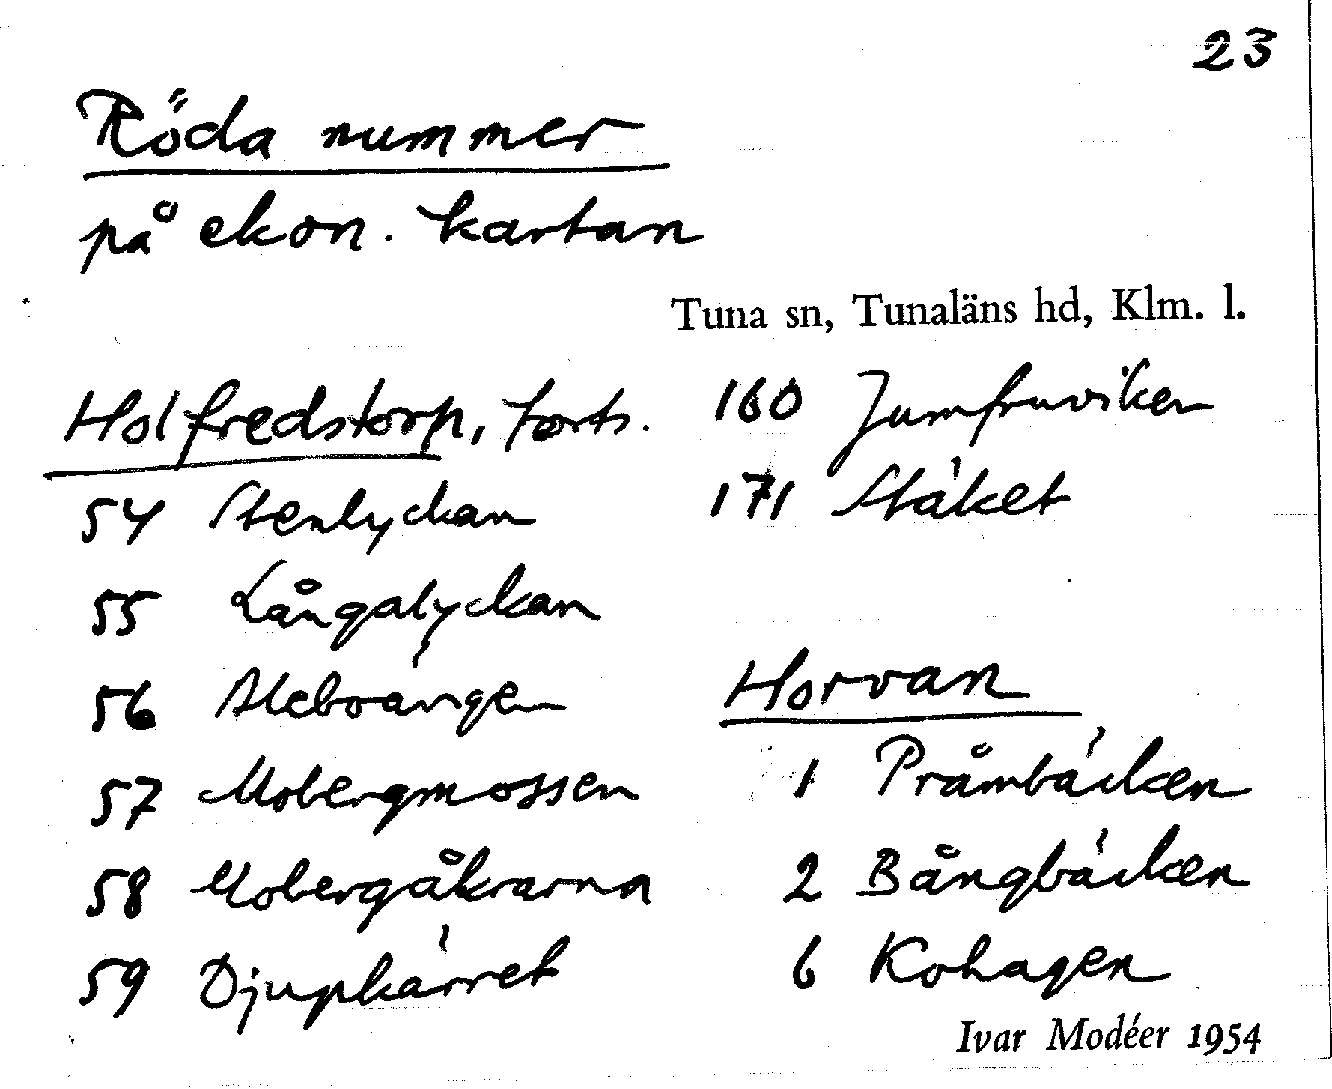 23
Röda nummer
på ekon. kartan
Tuna sn, Tunaläns hd, Klm. l.
Holfredstorp, forts.
54 Stenlyckan
55 Långalyckan
56 Aleboängen
57 Mobergmossen
58 Mobergåkrarna
59 Djupkärret
160 Jumfruviken
171 Stäket
Horvan
1 Pråmbäcken
2 Bångbäcken
6 Kohagen
Ivar Modéer 1954